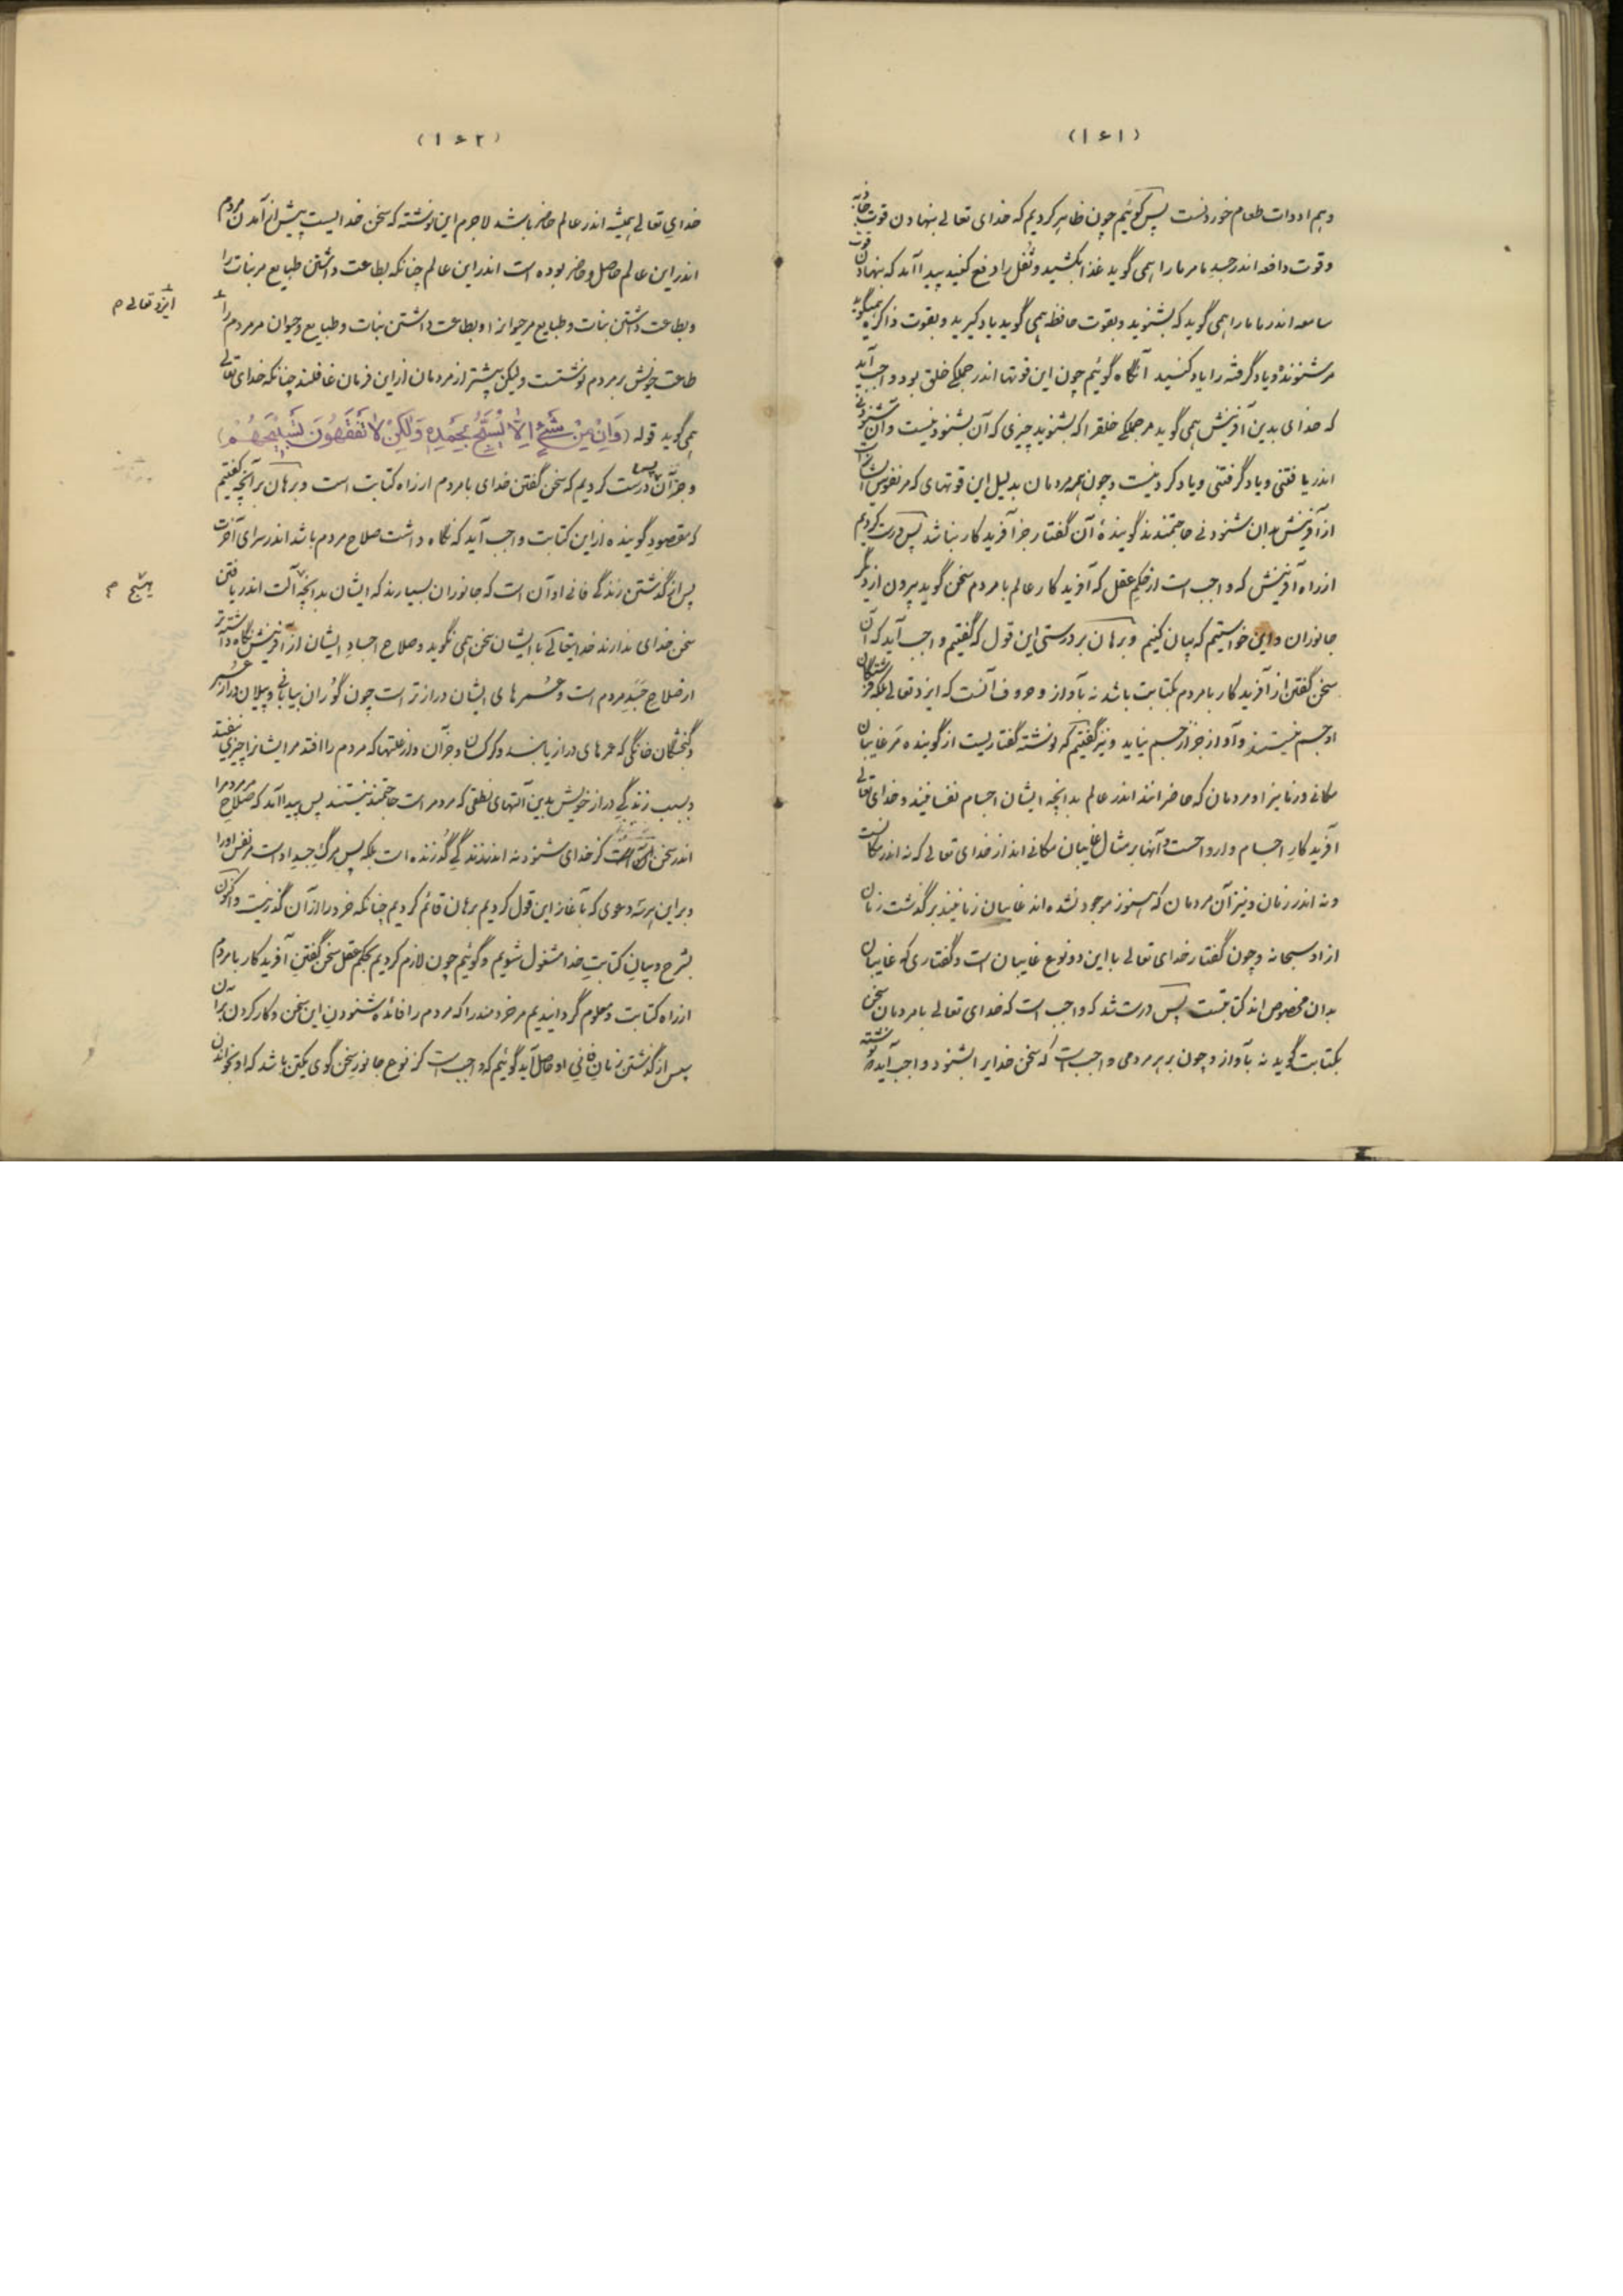 (۱۶۱)
و هم ادوات طعام خوردنست پس گوئیم چون ظاهر کردیم که خدای تعالی بنهادن قوت جاذبه
و قوت دافعه اندر جسد ما مر ما را همی گوید غذا بکشید و ثفل را دفع کنید پیدا آمد که بنهادن قوت
سامعه اندر ما ما را همی گوید که بشنوید و بقوت حافظه همی گوید یاد گیرید و بقوت ذاکره همیگوید
مر شنوده و یاد گرفته را یاد کنید آنگاه گوئیم چون این قوتها اندر جملگی خلق بود واجب آید
که خدای بدین آفرینش همی گوید مر جملگی خلق را که بشنوید چیزی که آن بشنودنیست و آن شنودنی
اندر یافتنی و یاد گرفتنی و یاد کردنیست و چون همه مردمان بدلیل این قوتهای که مر نفوس ایشانراست
از آفرینش بدان شنودنی حاجتمندند گوینده آن گفتار جز آفریدگار نباشد پس درست کردیم
از راه آفرینش که واجب است از حکم عقل که آفریدگار عالم با مردم سخن گوید بیرون از دیگر
جانوران و این خواستیم که بیان کنیم و برهان بر درستی این قول که گفتیم واجب آید که آن
سخن گفتن از آفریدگار با مردم بکتابت باشد نه بآواز و حروف آنست که ایزد تعالی بلکه فرشتگان
او جسم نیستند و آواز جز از جسم نیاید و نیز گفتیم که نوشته گفتاریست از گوینده مر غایبان
مکانی و زمانیرا و مردمان که حاضرانند اندر عالم بدانچه ایشان اجسام نفسانیند و خدای تعالی
آفریدگار اجسام و ارواحست و آنها بر مثال غایبان مکانی‌اند از خدای تعالی که نه اندر مکانست
و نه اندر زمان و نیز آن مردمان که هنوز موجود نشده‌اند غایبان زمانیند بر گذشت زمان
از او سبحانه و چون گفتار خدای تعالی با این دو نوع غایبان است و گفتاری که غایبان
بدان مخصوص‌اند کتابتست پس درست شد که واجب است که خدای تعالی با مردمان سخن
بکتابت گوید نه بآواز و چون بر هر مردمی واجبست که سخن خدایرا بشنود و واجب آید که نوشته
(۱۶۲)
خدای تعالی همیشه اندر عالم حاضر باشد لاجرم این نوشته که سخن خدایست پیش از آمدن مردم
اندر این عالم حاصل و حاضر بوده است اندر این عالم چنانکه بطاعت داشتن طبایع مر نبات را
و بطاعت داشتن نبات و طبایع مر حیوانرا و بطاعت داشتن نبات و طبایع و حیوان مر مردم را
ایزد تعالی م
طاعت خویش بر مردم نوشتست ولیکن بیشتر از مردمان از این فرمان غافلند چنانکه خدای تعالی
همی گوید قوله (وَاِنْ مِنْ شَیْءٍ اِلّا یُسَبِّحُ بِحَمْدِهِ وَلکِنْ لا تَفْقَهُونَ تَسْبِیحَهُمْ)
و جز آن پس درست کردیم که سخن گفتن خدای با مردم از راه کتابت است و برهان بر آنچه گفتیم
که مقصود گوینده از این کتابت واجب آید که نگاه داشت صلاح مردم باشد اندر سرای آخرت
پس از گذشتن زندگی فانی او آن است که جانوران بسیارند که ایشان بدانچه آلت اندر یافتن
هیچ م
سخن خدای ندارند خدایتعالی با ایشان سخن همی نگوید و صلاح اجساد ایشان از آفرینش نگاه داشته‌تر
از صلاح جسد مردم است و عمرهای ایشان درازتر است چون گوران بیابانی و پیلان دراز عمر
و گنجشگان خانگی که عمرهای دراز یابند و کرکسان و جز آن و از علتها که مردم را افتد مر ایشانرا چیزی نیفتد
و بسبب زندگی دراز خویش بدین آلتهای نطقی که مردمراست حاجتمند نیستند پس پیدا آمد که صلاح مر مردم را
اندر سخن کز خدای شنود نه اندر زندگی گذرنده است بلکه پس مرگ جسد اوست مر نفس او را
و بر این هر سه دعوی که بآغاز این قول کردیم برهان قائم کردیم چنانکه خرد را از آن گذر نیست و اکنون
بشرح و بیان کتابت خدا مشغول شویم و گوئیم چون لازم کردیم بحکم عقل سخن گفتن آفریدگار با مردم
از راه کتابت و معلوم گردانیدیم مر خردمند را که مردم را فائده شنودن این سخن و کار کردن بر آن
پس از گذشتن زمان فانی او حاصل آید گوئیم که واجبست کز نوع جانور سخن گوی یکتن باشد که او بخواندن